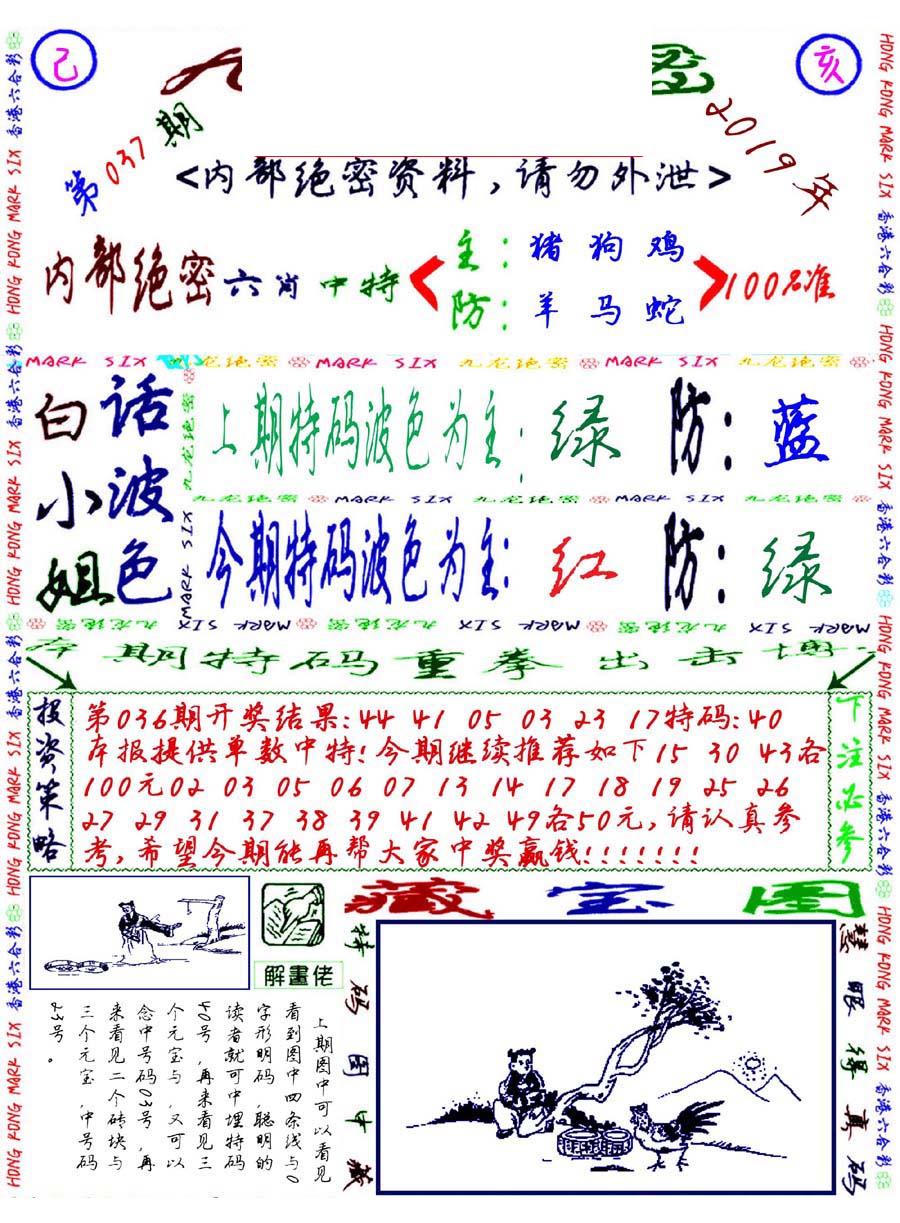 己
亥
第037期
2019年
<内部绝密资料,请勿外泄>
内部绝密六肖中特
主:猪 狗 鸡
防:羊 马 蛇
100%准
MARK SIX 九龙绝密 MARK SIX 九龙绝密 MARK SIX 九龙绝密
白话
小波
姐色
上期特码波色为主:绿 防:蓝
九龙绝密 MARK SIX 九龙绝密 MARK SIX 九龙绝密
今期特码波色为主:红 防:绿
MARK SIX 九龙绝密 MARK SIX 九龙绝密 MARK SIX 九龙绝密
九龙绝密 MARK SIX
期特码重拳出击
投资策略
第036期开奖结果:44 41 05 03 23 17特码:40
本报提供单数中特!今期继续推荐如下15 30 43各
100元02 03 05 06 07 13 14 17 18 19 25 26
27 29 31 37 38 39 41 42 49各50元,请认真参
考,希望今期能再帮大家中奖赢钱!!!!!!!
下注必参
解畫佬
藏宝图
上期图中可以看见
看到图中四条线与0
字形明码,聪明的
读者就可中埋特码
40号,再来看见三
个元宝与,又可以
念中号码03号,再
来看见二个砖块与
三个元宝,中号码
23号。
特码图中藏
慧眼得真码
香港六合彩 HONG KONG MARK SIX 香港六合彩 HONG KONG MARK SIX 香港六合彩 HONG KONG MARK SIX 香港六合彩 HONG KONG MARK SIX
HONG KONG MARK SIX 香港六合彩 HONG KONG MARK SIX 香港六合彩 HONG KONG MARK SIX 香港六合彩 HONG KONG MARK SIX 香港六合彩